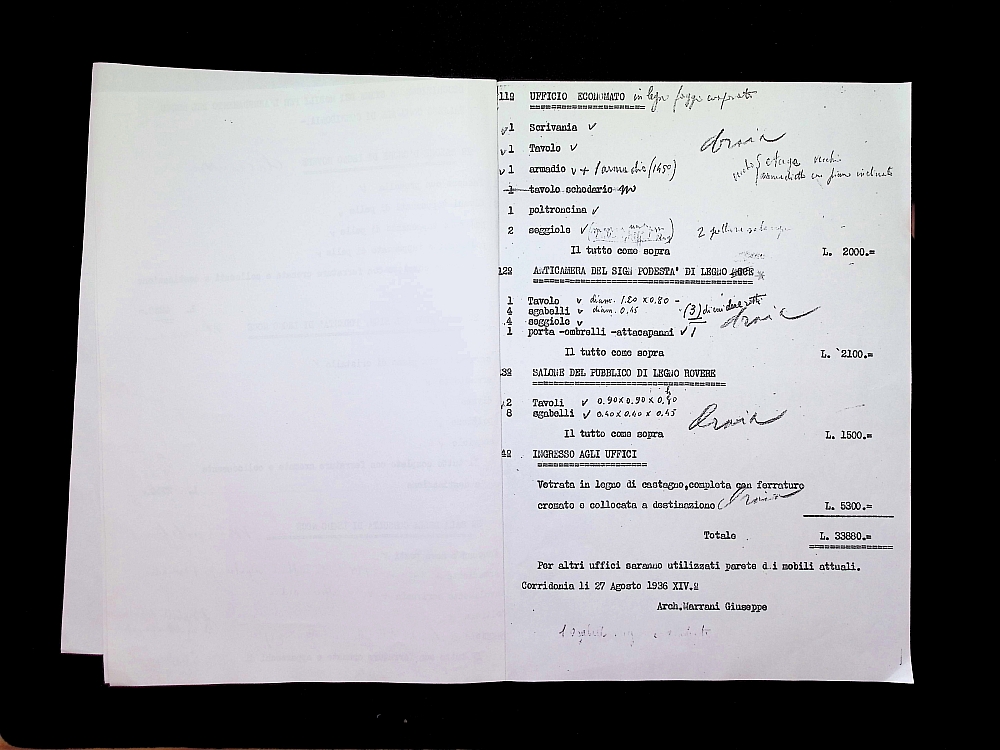 11º UFFICIO ECONOMATO in legno faggio
1 Scrivania
1 Tavolo
1 armadio + 1 armadio (1450)
1 tavolo schedario no
1 poltroncina
2 seggiole
Il tutto come sopra L. 2000.=
12º ANTICAMERA DEL SIGN PODESTA' DI LEGNO NOCE
1 Tavolo diam. 1.20 x 0.80
4 sgabelli diam. 0.45 (3)
4 seggiole
1 porta -ombrelli -attacapanni 1
Il tutto come sopra L. 2100.=
3º SALONE DEL PUBBLICO DI LEGNO ROVERE
2 Tavoli 0.90x0.90x0.80
8 sgabelli 0.40x0.40x0.45
Il tutto come sopra L. 1500.=
4º INGRESSO AGLI UFFICI
Vetrata in legno di castagno,completa con ferrature
cromate e collocata a destinazione L. 5300.=
Totale L. 33880.=
Per altri uffici saranno utilizzati parete d.i mobili attuali.
Corridonia li 27 Agosto 1936 XIV.º
Arch.Marrani Giuseppe